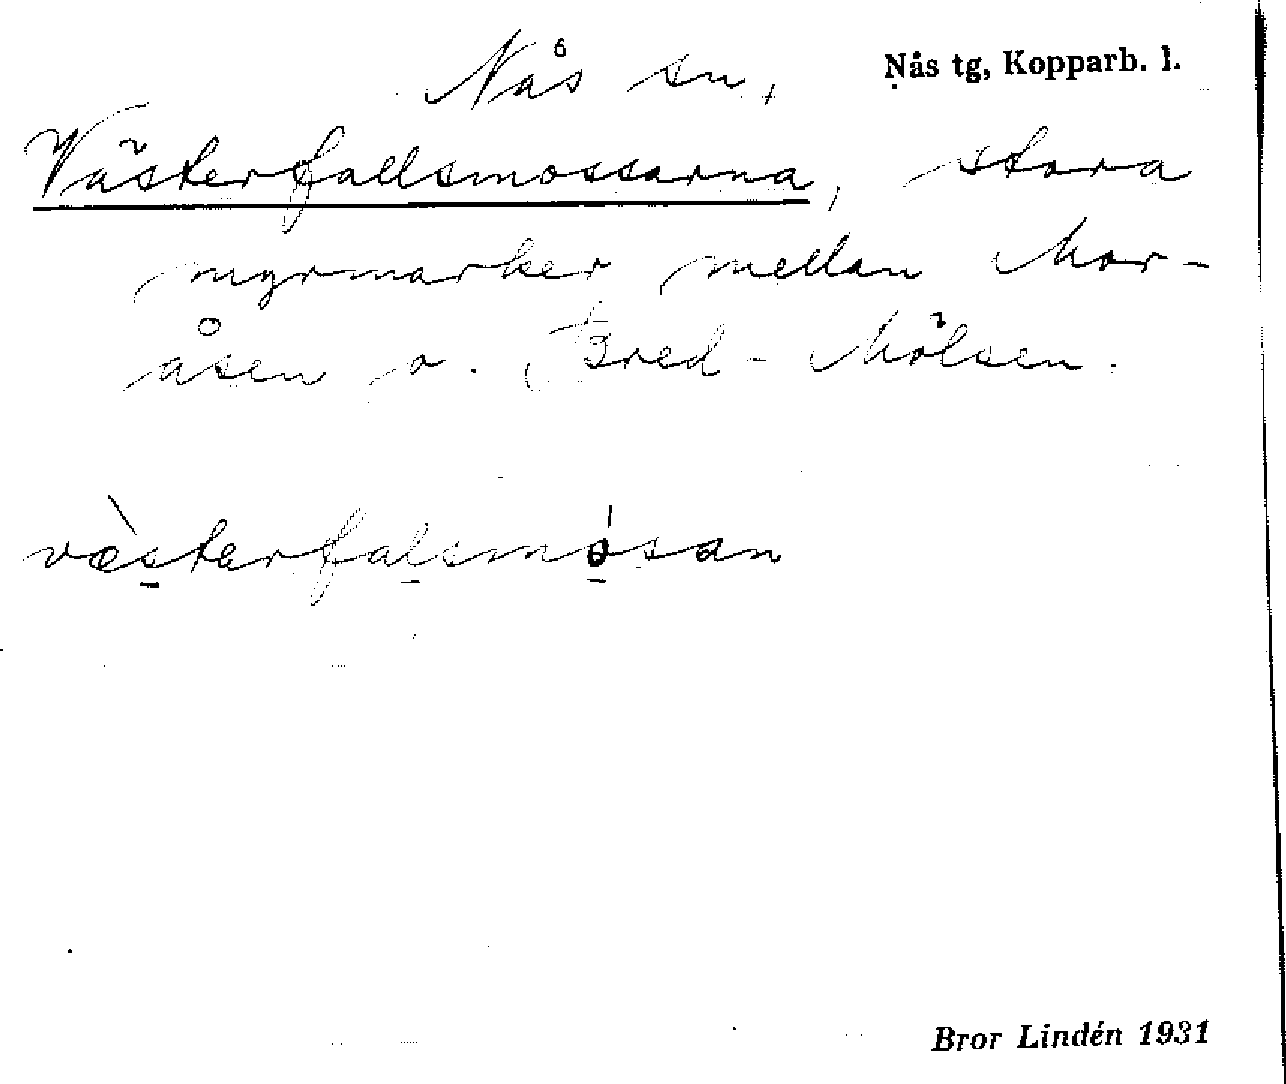 Nås sn, Nås tg, Kopparb. l.
Västerfallsmossarna, stora
myrmarker mellan Mor-
åsen o. Bred-Mölsen.
væ̀sterfalsmósan
Bror Lindén 1931